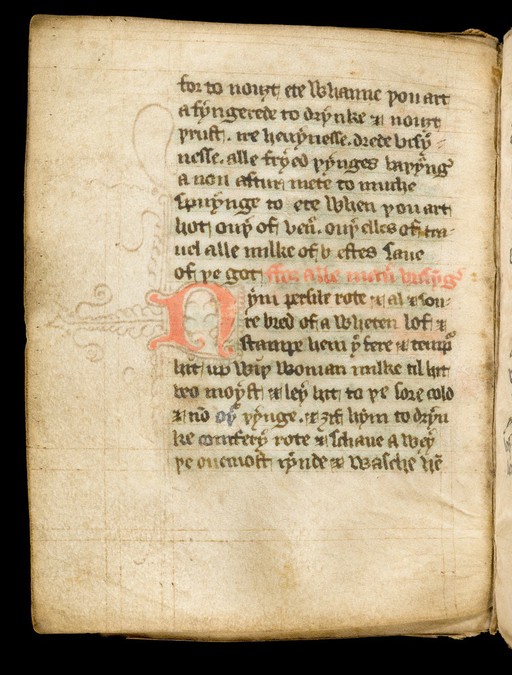 for to nouȝt ete Whanne þou art
a fyngerede to drynke & nouȝt
þrust. ire heuynesse. drede
nesse. alle fryed þynges
a non aftur mete to muche
ete When þou art
hot ouþ of ouþ elles of tra
uel alle milke of b estes saue
of þe got ffor alle
Nym persile rote & al & sou
re bred of a Wheten lof &
stampe hem y fere & temp
hit up Wiþ Woman milke til hit
beo moyst & ley hit to þe sore cold
& no oþ þynge. & ȝif hym to dryn
ke comfery rote & schaue a Wey
þe ouemost rynde & Wasche